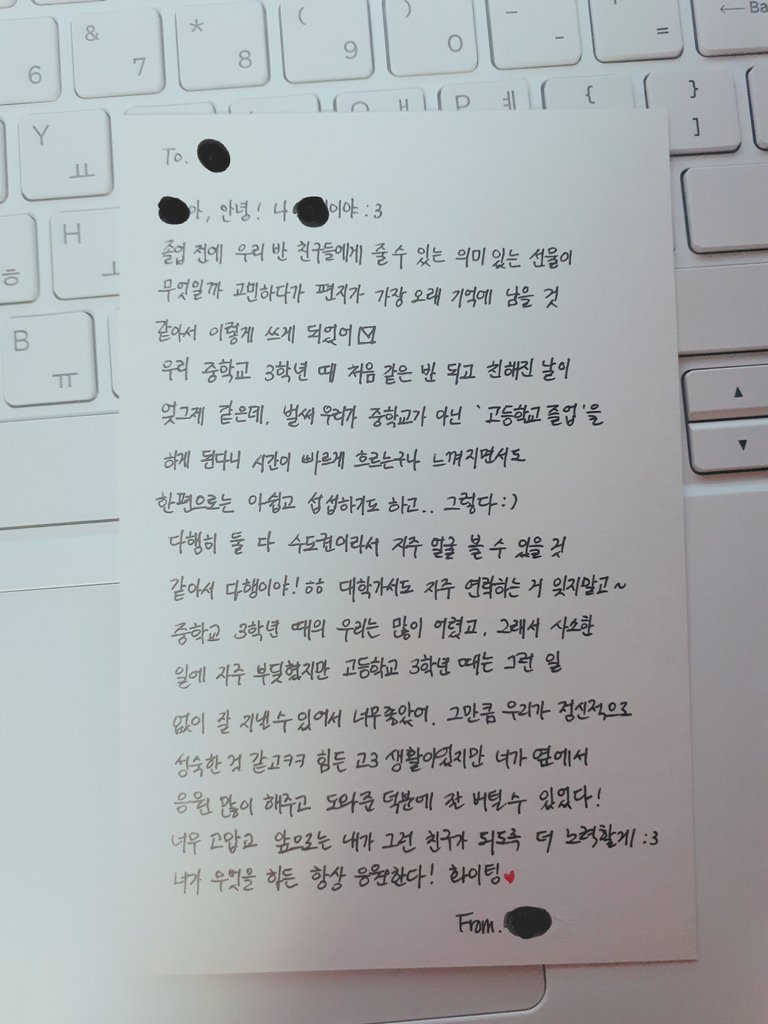 & 7
6
* 8
( 9
) 0
_ -
+ =
← Ba
Y ㅛ
{ [
} ]
H ㅗ
ㅎ
B ㅠ
▲
▼
To.
아, 안녕! 나 이야 :3
졸업 전에 우리 반 친구들에게 줄 수 있는 의미 있는 선물이
무엇일까 고민하다가 편지가 가장 오래 기억에 남을 것
같아서 이렇게 쓰게 되었어
우리 중학교 3학년 때 처음 같은 반 되고 친해진 날이
엊그제 같은데, 벌써 우리가 중학교가 아닌 '고등학교 졸업'을
하게 된다니 시간이 빠르게 흐르는구나 느껴지면서도
한편으로는 아쉽고 섭섭하기도 하고.. 그렇다 :)
다행히 둘 다 수도권이라서 자주 얼굴 볼 수 있을 것
같아서 다행이야! ㅎㅎ 대학가서도 자주 연락하는 거 잊지말고~
중학교 3학년 때의 우리는 많이 어렸고, 그래서 사소한
일에 자주 부딪혔지만 고등학교 3학년 때는 그런 일
없이 잘 지낼 수 있어서 너무 좋았어. 그만큼 우리가 정신적으로
성숙한 것 같고ㅋㅋ 힘든 고3 생활이었지만 너가 옆에서
응원 많이 해주고 도와준 덕분에 잘 버틸 수 있었다!
너무 고맙고 앞으로는 내가 그런 친구가 되도록 더 노력할게 :3
너가 무엇을 하든 항상 응원한다! 화이팅♥
From.